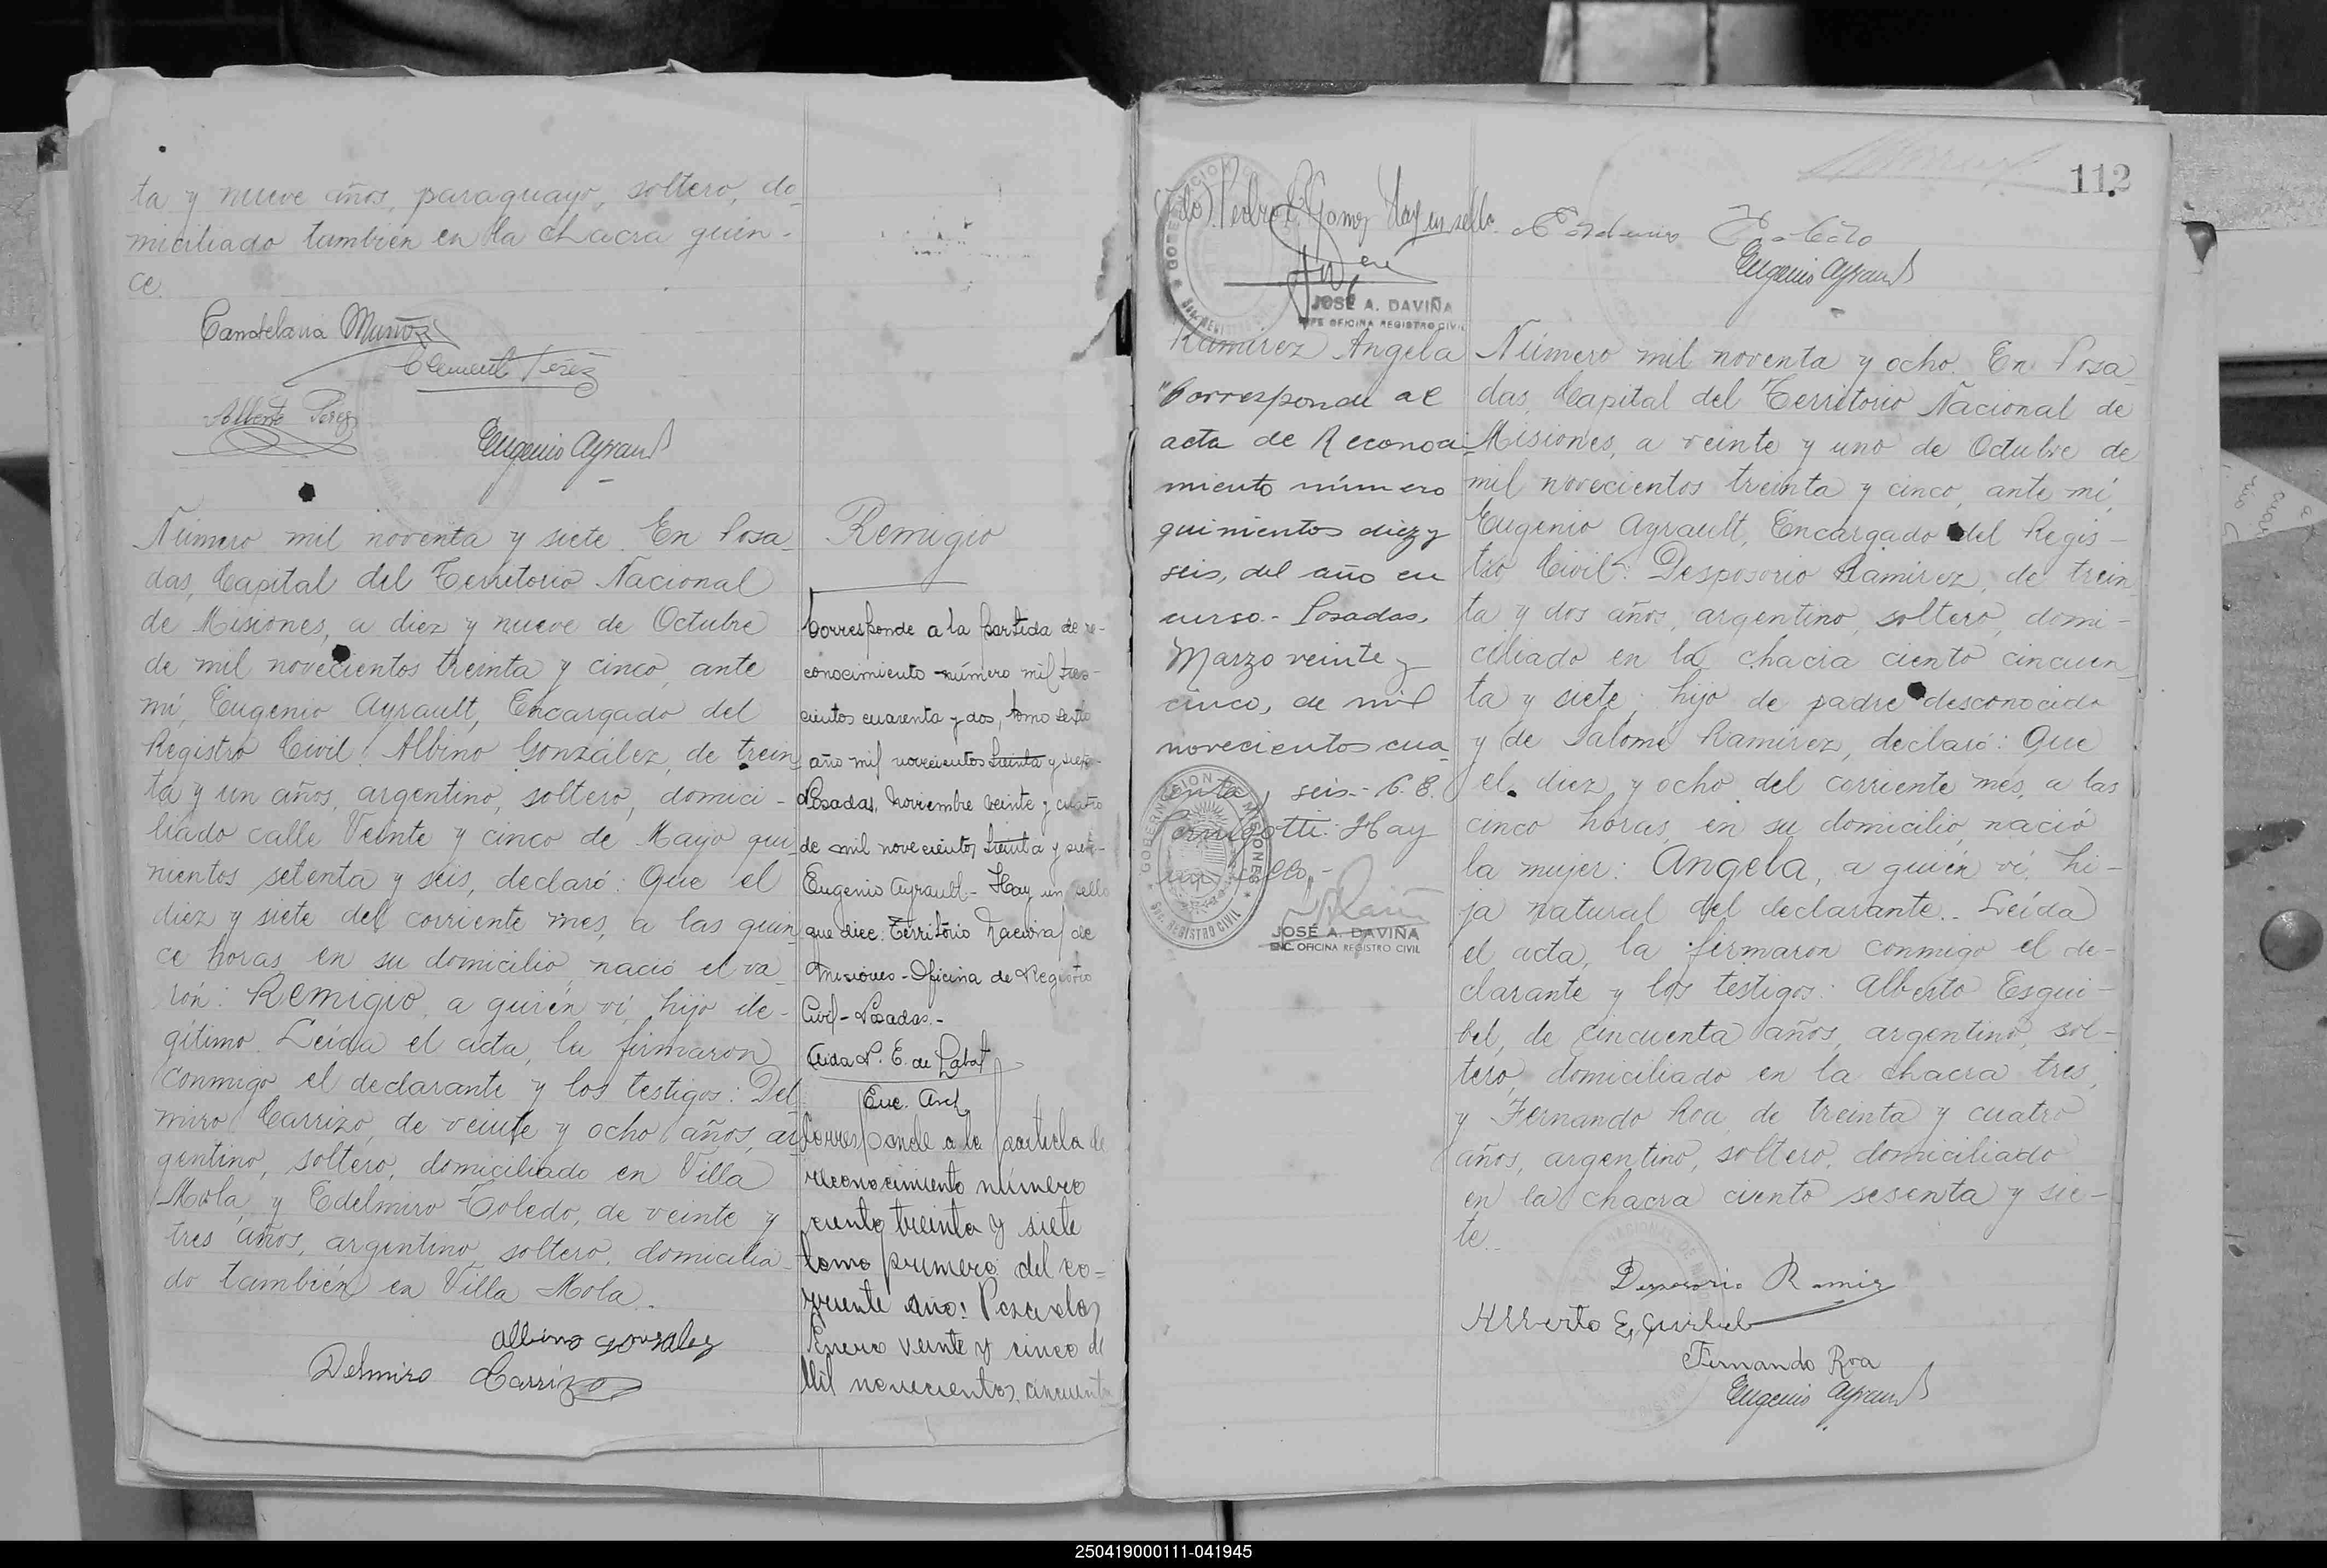 ta y nueve años, paraguayo, soltero, do-
miciliado también en la chacra quin-
ce.
Candelaria Muñoz
Clement Perez
Alberto Perez
Eugenio Ayrault
Número mil noventa y siete. En Posa-
das, Capital del Territorio Nacional
de Misiones, a diez y nueve de Octubre
de mil novecientos treinta y cinco, ante
mí, Eugenio Ayrault, Encargado del
Registro Civil: Albino González, de trein-
ta y un años, argentino, soltero, domici-
liado calle Veinte y cinco de Mayo qui-
nientos setenta y seis, declaró: Que el
diez y siete del corriente mes, a las quin-
ce horas en su domicilio, nació el va-
rón: Remigio, a quién ví, hijo ile-
gítimo. Leída el acta, la firmaron
conmigo el declarante y los testigos: Del-
miro Carrizo, de veinte y ocho años, ar-
gentino, soltero, domiciliado en Villa
Mola, y Edelmiro Toledo, de veinte y
tres años, argentino, soltero, domicilia-
do también en Villa Mola.
Albino Gonzalez
Delmiro Carrizo
Remigio
Corresponde a la partida de re-
conocimiento número mil tres-
cientos cuarenta y dos, tomo sexto
año mil novecientos treinta y siete-
Posadas, Noviembre veinte y cuatro
de mil novecientos treinta y siete-
Eugenio Ayrault- Hay un sello
que dice: Territorio Nacional de
Misiones- Oficina de Registro
Civil- Posadas.-
Aida P. E. de Labat
Enc. Arch.
Corresponde a la partida de
reconocimiento número
ciento treinta y siete
tomo primero del co-
rriente año: Posadas
Enero veinte y cinco de
Mil novecientos cincuenta
112
(Fdo) Pedro E. Gomez Hay un sello
JOSÉ A. DAVIÑA
JEFE OFICINA REGISTRO CIVIL
Eugenio Ayrault
Ramírez Angela
"Corresponde al
acta de Reconoci-
miento número
quinientos diez y
seis, del año en
curso.- Posadas,
Marzo veinte y
cinco, de mil
novecientos cua-
renta y seis.- C. B.
Hay
un sello.-
GOBERNACION MISIONES
REGISTRO CIVIL
JOSÉ A. DAVIÑA
ENC. OFICINA REGISTRO CIVIL
Número mil noventa y ocho. En Posa-
das, Capital del Territorio Nacional de
Misiones, a veinte y uno de Octubre de
mil novecientos treinta y cinco, ante mí,
Eugenio Ayrault, Encargado del Regis-
tro Civil: Desposorio Ramírez, de trein-
ta y dos años, argentino, soltero, domi-
ciliado en la chacra ciento cincuen-
ta y siete, hijo de padre desconocido
y de Salomé Ramírez, declaró: Que
el diez y ocho del corriente mes, a las
cinco horas, en su domicilio, nació
la mujer: Angela, a quién ví, hi-
ja natural del declarante.- Leída
el acta, la firmaron conmigo el de-
clarante y los testigos: Alberto Esqui-
bel, de cincuenta años, argentino, sol-
tero, domiciliado en la chacra tres,
y Fernando Roa, de treinta y cuatro
años, argentino, soltero, domiciliado
en la chacra ciento sesenta y sie-
te.-
Desposorio Ramirez
Alberto Esquibel
Fernando Roa
Eugenio Ayrault
250419000111-041945